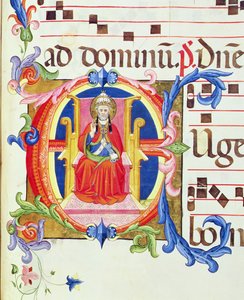 ad dominū. p̄. Dn̄e
uge
bo